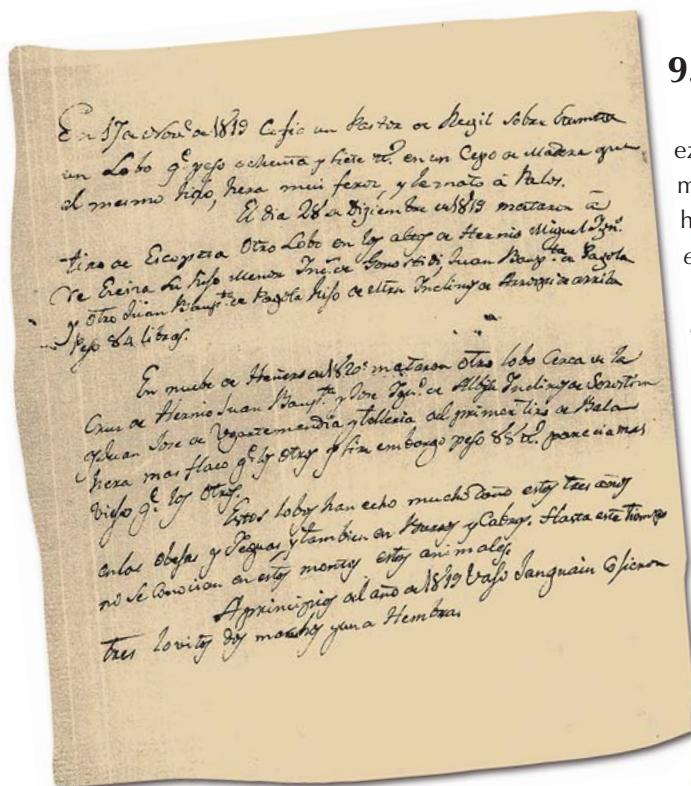 En 17 de Nove. de 1819 Cosio un Pastor de Regil sobre
un Lobo qe. peso ochenta y siete en un Cepo de Madera que
el mismo hiso, hera mui feroz, y le mato à Palos.
El dia 28 de Diziembre de 1819 mataron à
tiro de Escopeta Otro Lobo en los altos de Hernio Miguel Ign.
de Ereira su hijo Menor Ign. de Gorostidi, Juan Baupta. de Pagola
y otro Juan Baupta. de Pagola hiso de Inclino. de arriba
Peso 84 libras.
En nuebe de Henero de 1820 mataron otro lobo Cerca de la
Cruz de Hernio Juan Baupta. y Jose Ign. de Inclinos de
y Juan Jose de Ugartemendia y tolleria al primer tiro de Bala
hera mas flaco qe. los Otros y sin embargo peso 88 parecia mas
viejo qe. los Otros.
Estos lobos han echo mucho daño estos tres años
en las obejas y Yeguas y tambien en Burros y Cabras. Hasta este tiempo
no se conocian en estos montes estos animales.
A principios del año de 1819 Vaso Cosieron
tres lovitos dos machos y una Hembra
9.
ez
m
h
e